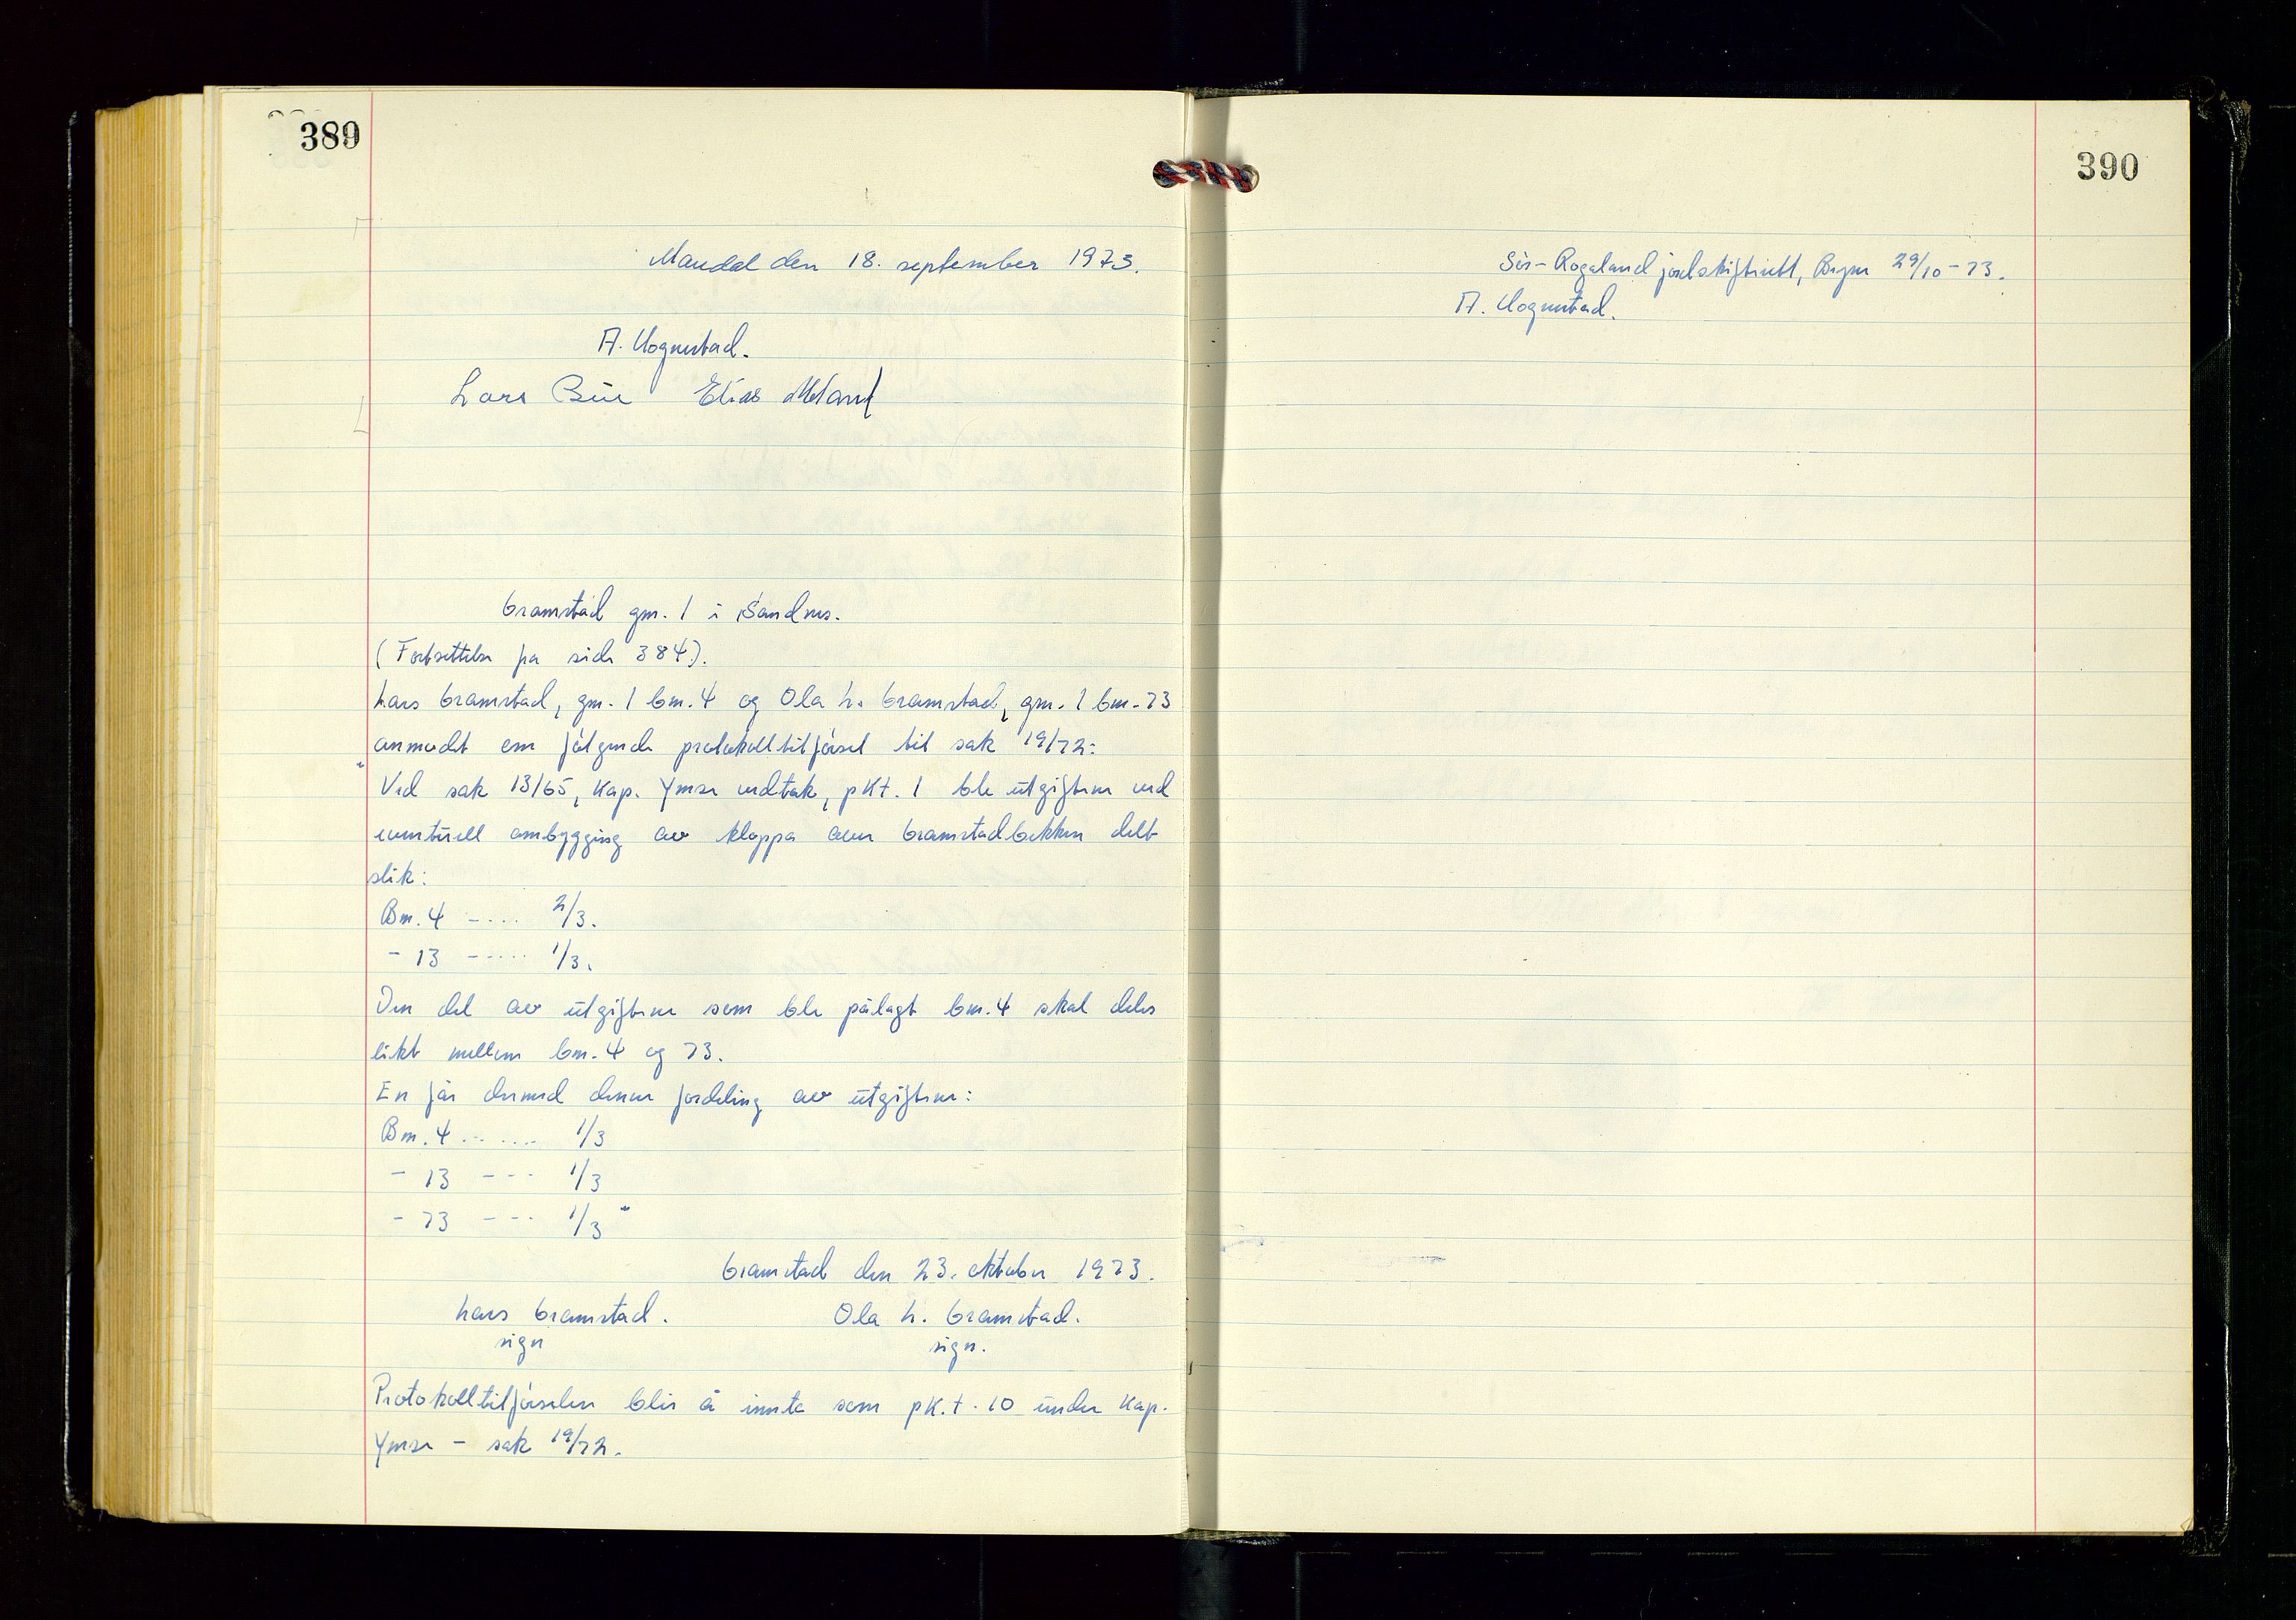 389
Mandal den 18. september 1973.
A. Hognestad.
Lars Bue Elias Meland
Gramstad gnr. 1 i Sandnes.
(Fortsettelse fra side 384).
Lars Gramstad, gnr. 1 bnr. 4 og Ola L. Gramstad, gnr. 1 bnr. 73
anmodt om følgende protokolltilførsel til sak 19/72:
"Ved sak 13/65, kap. Ymse vedtak, pkt. 1 ble utgiftene ved
eventuell ombygging av kloppa over Gramstadbekken delt
slik:
Bnr. 4 -... 2/3.
- 13 -.... 1/3.
Den del av utgiftene som ble pålagt bnr. 4 skal deles
likt mellom bnr. 4 og 73.
En får dermed denne fordeling av utgiftene:
Bnr. 4 ...... 1/3
- 13 --- 1/3
- 73 --- 1/3"
Gramstad den 23. oktober 1973.
Lars Gramstad. Ola L. Gramstad.
sign sign.
Protokolltilførselen blir å innta som pk.t. 10 under kap.
Ymse - sak 19/72.
390
Sør-Rogaland jordskifterett, Bryne 29/10-73.
A. Hognestad.